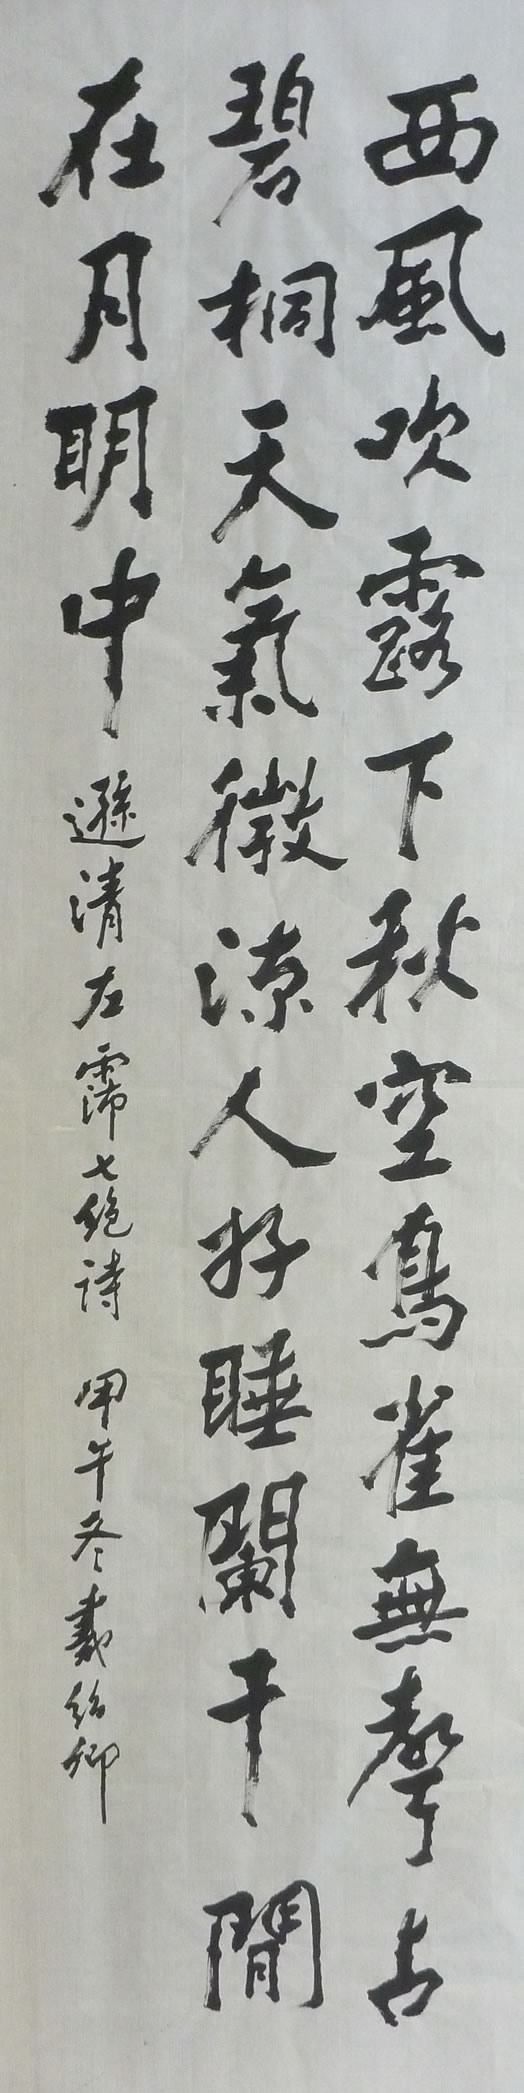 西風吹露下秋空鳥雀無聲占
碧桐天氣微涼人好睡闌干閒
在月明中遜清左霈七絕詩 甲午冬戴紹卿